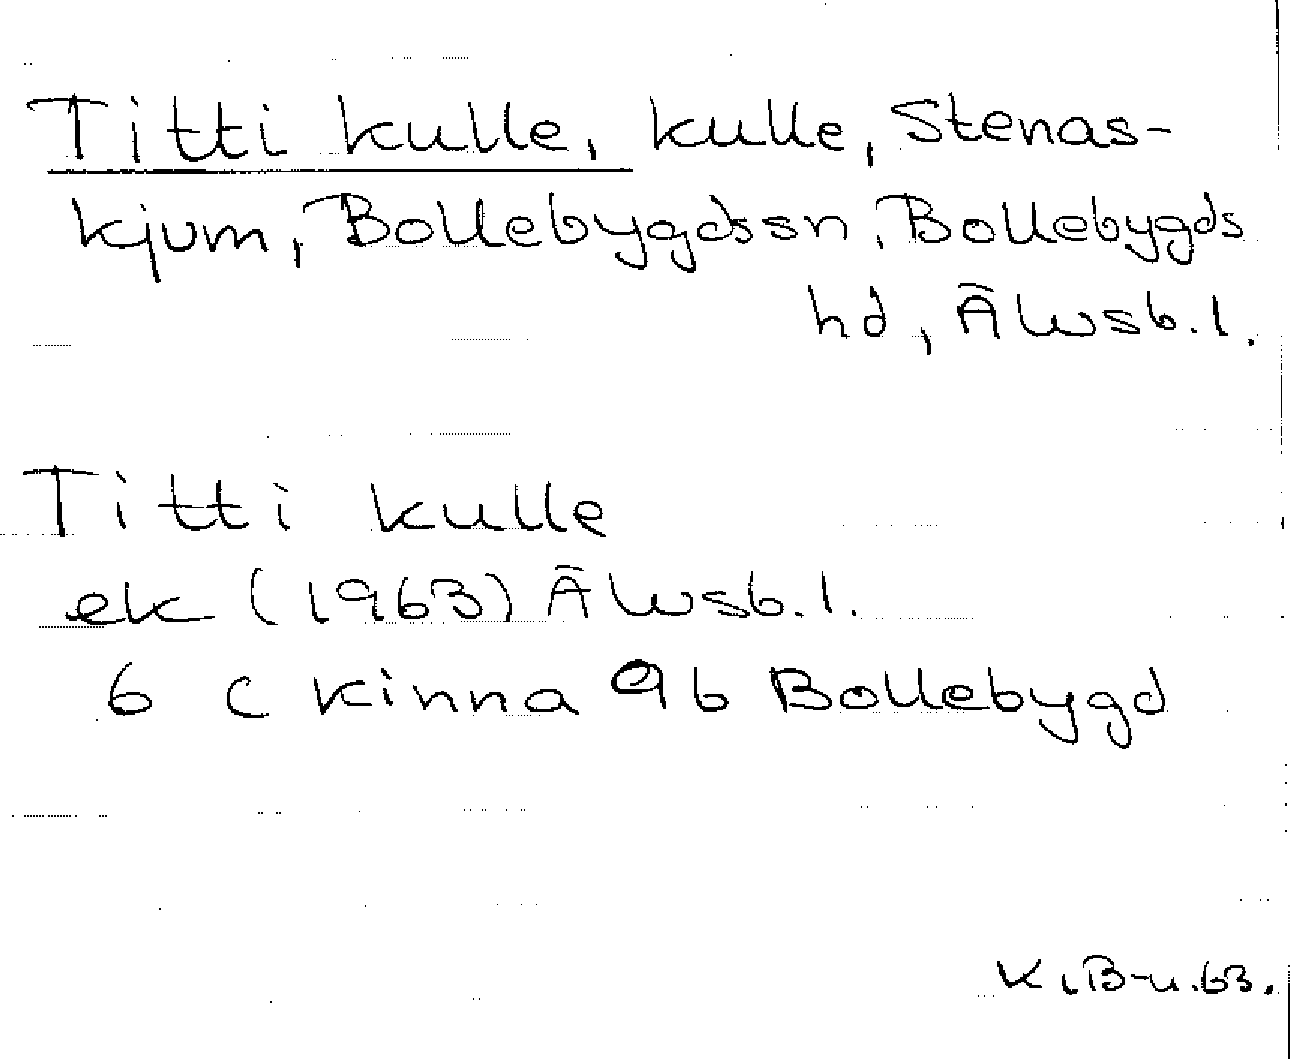 Titti kulle, kulle, Stenas-
kjum, Bollebygdssn, Bollebygds
hd, Älvsb.l.
Titti kulle
ek (1963) Älvsb.l.
6 C Kinna 9b Bollebygd
K.B-n.63.